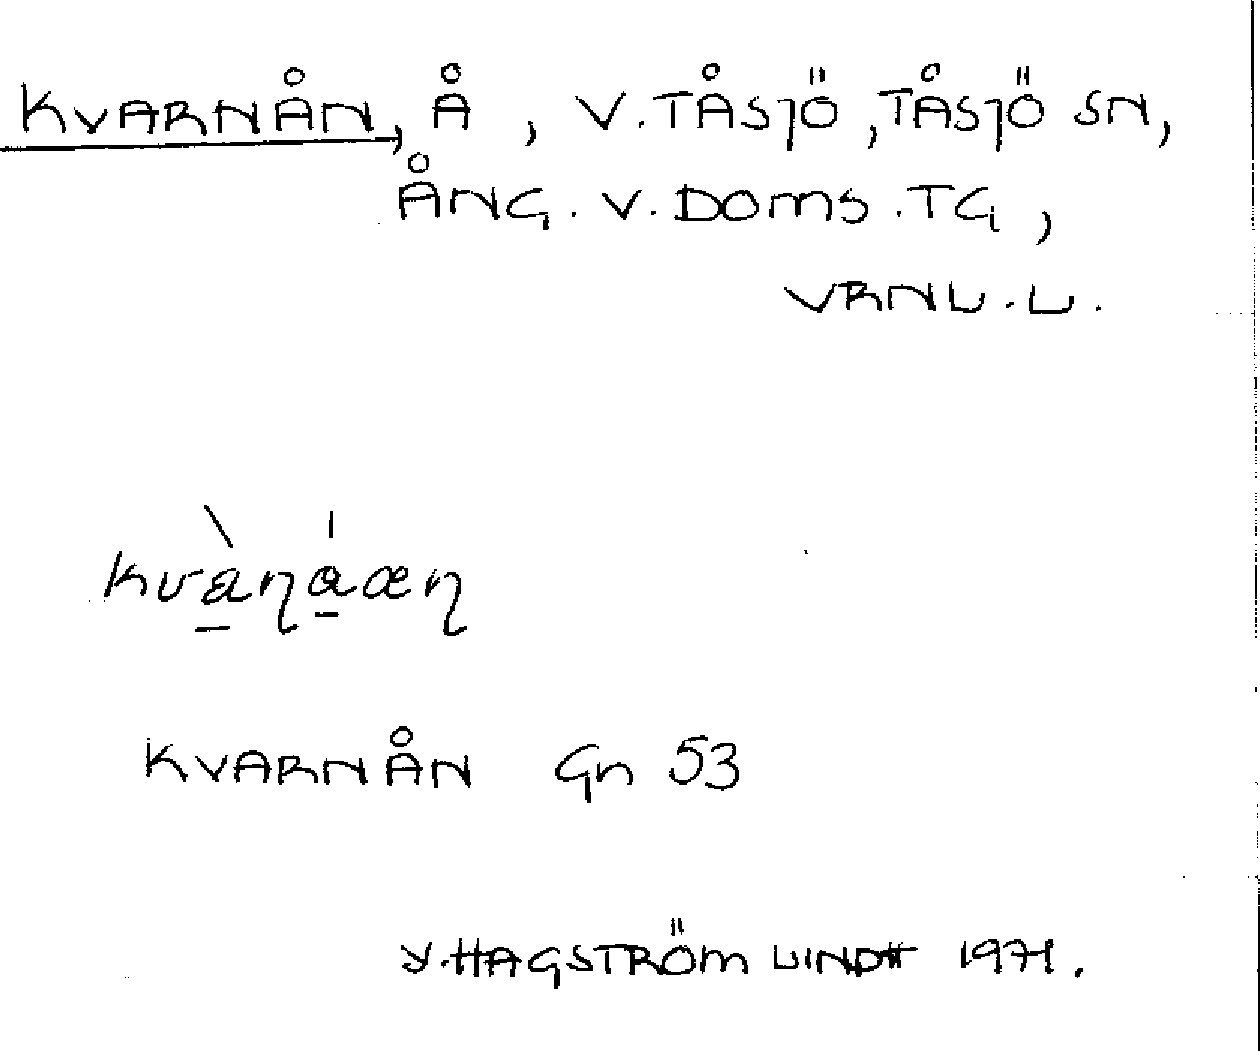 KVARNÅN, Å, V. TÅSJÖ, TÅSJÖ SN,
ÅNG. V. DOMS. TG,
VRNL. L.
kvàɳáæɳ
KVARNÅN Gn 53
Y. HAGSTRÖM LINDH 1971.